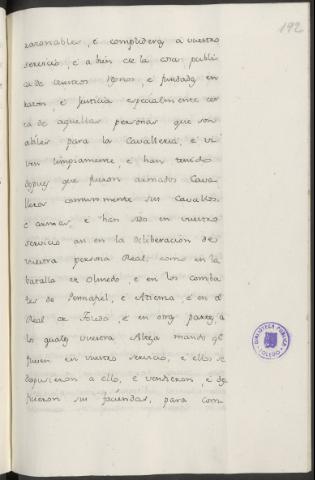 192
razonables, é complideras á vuestro
servicio, é á bien de la cosa publi
ca de vuestros Reynos, é fundada en
razon, é Justicia especialmente cer
ca de aquellas personas que son
abiles para la Cavalleria, é vi
ven limpiamente, é han tenido
despues que fueron armados Cava
lleros comunmente sus Cavallos,
é armas, é han sido en vuestro
servicio asi en la deliberacion de
vuestra persona Real, como en la
batalla de Olmedo, é en los comba
tes de Peñafiel, é Atienza, é en el
Real de Toledo, é en otras partes, á
los quales vuestra Alteza mandó qe
fuesen en vuestro servicio, é ellos se
dispusieron á ello, é vendieron, é de
pusieron sus faciendas, para com-
BIBLIOTECA PÚBLICA
TOLEDO